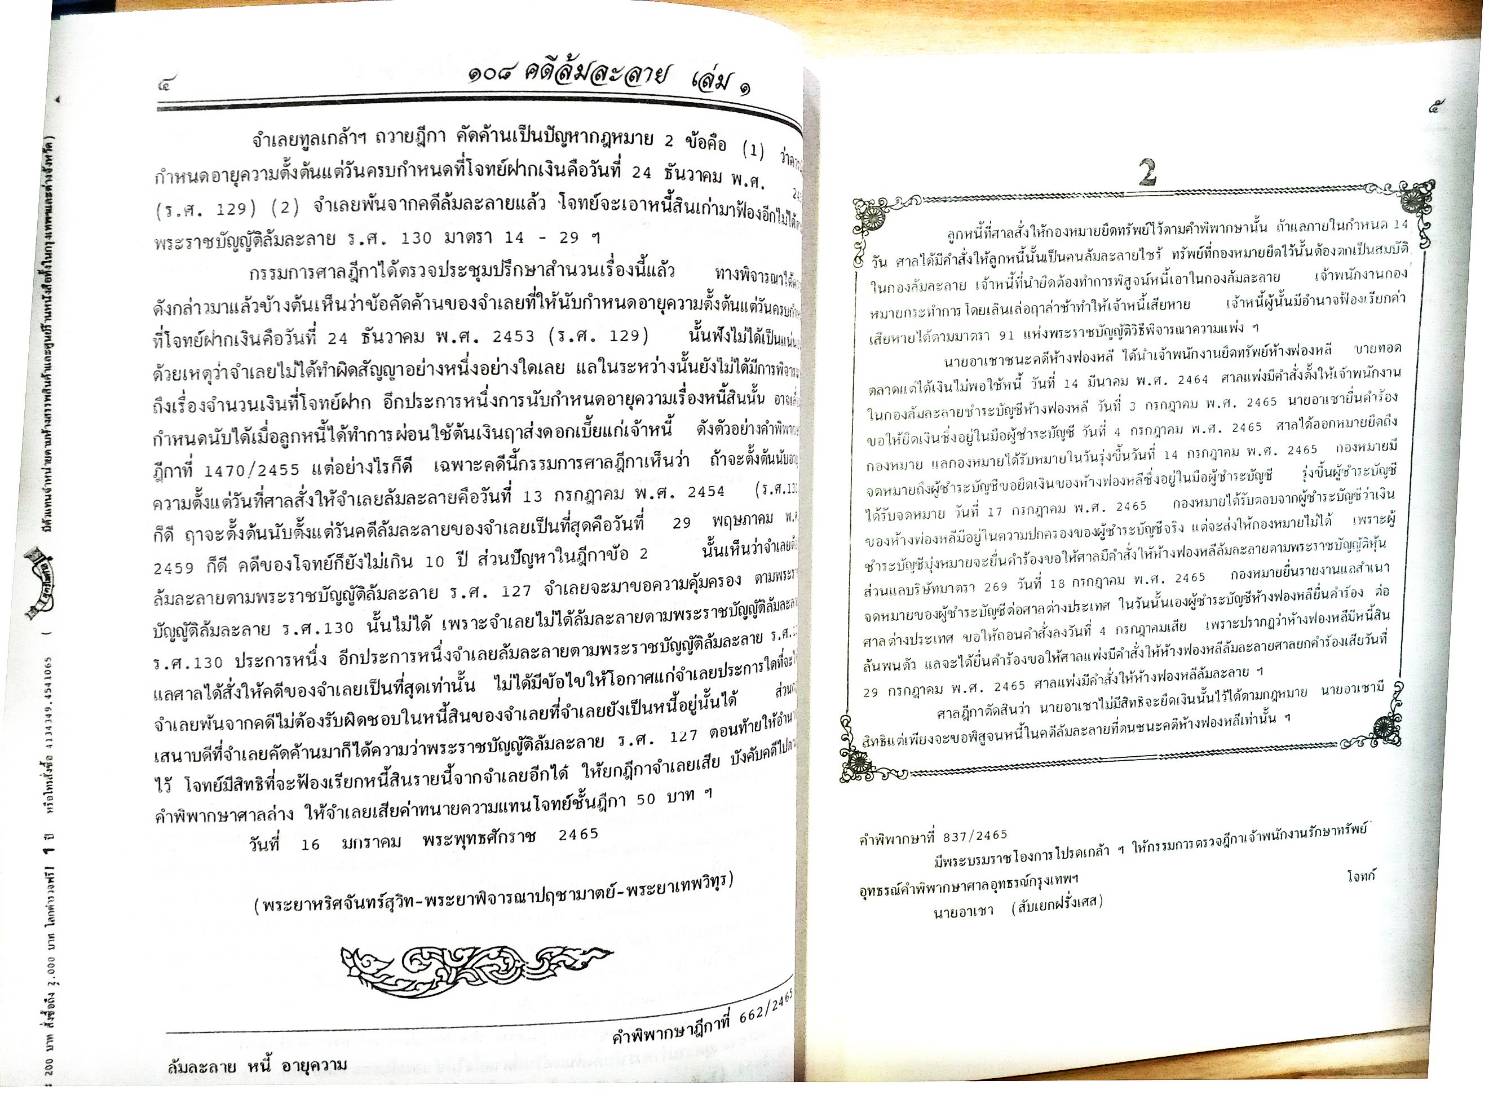 ๔
๑๐๘ คดีล้มละลาย เล่ม ๑
จำเลยทูลเกล้าฯ ถวายฎีกา คัดค้านเป็นปัญหากฎหมาย 2 ข้อคือ (1)
กำหนดอายุความตั้งต้นแต่วันครบกำหนดที่โจทย์ฝากเงินคือวันที่ 24 ธันวาคม พ.ศ.
(ร.ศ. 129) (2) จำเลยพ้นจากคดีล้มละลายแล้ว โจทย์จะเอาหนี้สินเก่ามาฟ้องอีกไม่ได้
พระราชบัญญัติล้มละลาย ร.ศ. 130 มาตรา 14 - 29 ฯ
กรรมการศาลฎีกาได้ตรวจประชุมปรึกษาสำนวนเรื่องนี้แล้ว ทางพิจารณา
ดังกล่าวมาแล้วข้างต้นเห็นว่าข้อคัดค้านของจำเลยที่ให้นับกำหนดอายุความตั้งต้นแต่วันครบ
ที่โจทย์ฝากเงินคือวันที่ 24 ธันวาคม พ.ศ. 2453 (ร.ศ. 129) นั้นฟังไม่ได้เป็น
ด้วยเหตุว่าจำเลยไม่ได้ทำผิดสัญญาอย่างหนึ่งอย่างใดเลย แลในระหว่างนั้นยังไม่ได้มีการ
ถึงเรื่องจำนวนเงินที่โจทย์ฝาก อีกประการหนึ่งการนับกำหนดอายุความเรื่องหนี้สินนั้น
กำหนดนับได้เมื่อลูกหนี้ได้ทำการผ่อนใช้ต้นเงินฤาส่งดอกเบี้ยแก่เจ้าหนี้ ดังตัวอย่าง
ฎีกาที่ 1470/2455 แต่อย่างไรก็ดี เฉพาะคดีนี้กรรมการศาลฎีกาเห็นว่า ถ้าจะตั้งต้นนับ
ความตั้งแต่วันที่ศาลสั่งให้จำเลยล้มละลายคือวันที่ 13 กรกฎาคม พ.ศ. 2454
ก็ดี ฤาจะตั้งต้นนับตั้งแต่วันคดีล้มละลายของจำเลยเป็นที่สุดคือวันที่ 29 พฤษภาคม
2459 ก็ดี คดีของโจทย์ก็ยังไม่เกิน 10 ปี ส่วนปัญหาในฎีกาข้อ 2 นั้นเห็นว่า
ล้มละลายตามพระราชบัญญัติล้มละลาย ร.ศ. 127 จำเลยจะมาขอความคุ้มครอง
บัญญัติล้มละลาย ร.ศ.130 นั้นไม่ได้ เพราะจำเลยไม่ได้ล้มละลายตามพระราชบัญญัติ
ร.ศ.130 ประการหนึ่ง อีกประการหนึ่งจำเลยล้มละลายตามพระราชบัญญัติล้มละลาย
แลศาลได้สั่งให้คดีของจำเลยเป็นที่สุดเท่านั้น ไม่ได้มีข้อไขให้โอกาสแก่จำเลยประการใดที่จะ
จำเลยพ้นจากคดีไม่ต้องรับผิดชอบในหนี้สินของจำเลยที่จำเลยยังเป็นหนี้อยู่นั้นได้
เสนาบดีที่จำเลยคัดค้านมาก็ได้ความว่าพระราชบัญญัติล้มละลาย ร.ศ. 127 ตอนท้าย
ไว้ โจทย์มีสิทธิที่จะฟ้องเรียกหนี้สินรายนี้จากจำเลยอีกได้ ให้ยกฎีกาจำเลยเสีย
คำพิพากษาศาลล่าง ให้จำเลยเสียค่าทนายความแทนโจทย์ชั้นฎีกา 50 บาท ฯ
วันที่ 16 มกราคม พระพุทธศักราช 2465
(พระยาหริศจันทร์สุวิท-พระยาพิจารณาปฤชามาตย์-พระยาเทพวิทุร)
คำพิพากษาฎีกาที่ 662/2465
ล้มละลาย หนี้ อายุความ
๕
2
ลูกหนี้ที่ศาลสั่งให้กองหมายยึดทรัพย์ไว้ตามคำพิพากษานั้น ถ้าแลภายในกำหนด 14
วัน ศาลได้มีคำสั่งให้ลูกหนี้นั้นเป็นคนล้มละลายไซร้ ทรัพย์ที่กองหมายยึดไว้นั้นต้องตกเป็นสมบัติ
ในกองล้มละลาย เจ้าหนี้ที่นำยึดต้องทำการพิสูจน์หนี้เอาในกองล้มละลาย เจ้าพนักงานกอง
หมายกระทำการโดยเลินเล่อฤาล่าช้าทำให้เจ้าหนี้เสียหาย เจ้าหนี้ผู้นั้นมีอำนาจฟ้องเรียกค่า
เสียหายได้ตามมาตรา 91 แห่งพระราชบัญญัติวิธีพิจารณาความแพ่ง ฯ
นายอาเชาชนะคดีห้างฟองหลี ได้นำเจ้าพนักงานยึดทรัพย์ห้างฟองหลี ขายทอด
ตลาดแต่ได้เงินไม่พอใช้หนี้ วันที่ 14 มีนาคม พ.ศ. 2464 ศาลแพ่งมีคำสั่งตั้งให้เจ้าพนักงาน
ในกองล้มละลายชำระบัญชีห้างฟองหลี วันที่ 3 กรกฎาคม พ.ศ. 2465 นายอาเชายื่นคำร้อง
ขอให้ยึดเงินซึ่งอยู่ในมือผู้ชำระบัญชี วันที่ 4 กรกฎาคม พ.ศ. 2465 ศาลได้ออกหมายยึดถึง
กองหมาย แลกองหมายได้รับหมายในวันรุ่งขึ้นวันที่ 14 กรกฎาคม พ.ศ. 2465 กองหมายมี
จดหมายถึงผู้ชำระบัญชีขอยึดเงินของห้างฟองหลีซึ่งอยู่ในมือผู้ชำระบัญชี รุ่งขึ้นผู้ชำระบัญชี
ได้รับจดหมาย วันที่ 17 กรกฎาคม พ.ศ. 2465 กองหมายได้รับตอบจากผู้ชำระบัญชีว่าเงิน
ของห้างฟองหลีมีอยู่ในความปกครองของผู้ชำระบัญชีจริง แต่จะส่งให้กองหมายไม่ได้ เพราะผู้
ชำระบัญชีมุ่งหมายจะยื่นคำร้องขอให้ศาลมีคำสั่งให้ห้างฟองหลีล้มละลายตามพระราชบัญญัติหุ้น
ส่วนแลบริษัทมาตรา 269 วันที่ 18 กรกฎาคม พ.ศ. 2465 กองหมายยื่นรายงานแลสำเนา
จดหมายของผู้ชำระบัญชีต่อศาลต่างประเทศ ในวันนั้นเองผู้ชำระบัญชีห้างฟองหลียื่นคำร้อง ต่อ
ศาลต่างประเทศ ขอให้ถอนคำสั่งลงวันที่ 4 กรกฎาคมเสีย เพราะปรากฏว่าห้างฟองหลีมีหนี้สิน
ล้นพนตัว แลจะได้ยื่นคำร้องขอให้ศาลแพ่งมีคำสั่งให้ห้างฟองหลีล้มละลายศาลยกคำร้องเสียวันที่
29 กรกฎาคม พ.ศ. 2465 ศาลแพ่งมีคำสั่งให้ห้างฟองหลีล้มละลาย ฯ
ศาลฎีกาตัดสินว่า นายอาเชาไม่มีสิทธิจะยึดเงินนั้นไว้ได้ตามกฎหมาย นายอาเชามี
สิทธิแต่เพียงจะขอพิสูจนหนี้ในคดีล้มละลายที่ตนชนะคดีห้างฟองหลีเท่านั้น ฯ
คำพิพากษาที่ 837/2465
มีพระบรมราชโองการโปรดเกล้า ฯ ให้กรรมการตรวจฎีกาเจ้าพนักงานรักษาทรัพย์
อุทธรณ์คำพิพากษาศาลอุทธรณ์กรุงเทพฯ
นายอาเชา (สับเยกฝรั่งเศส) โจทก์